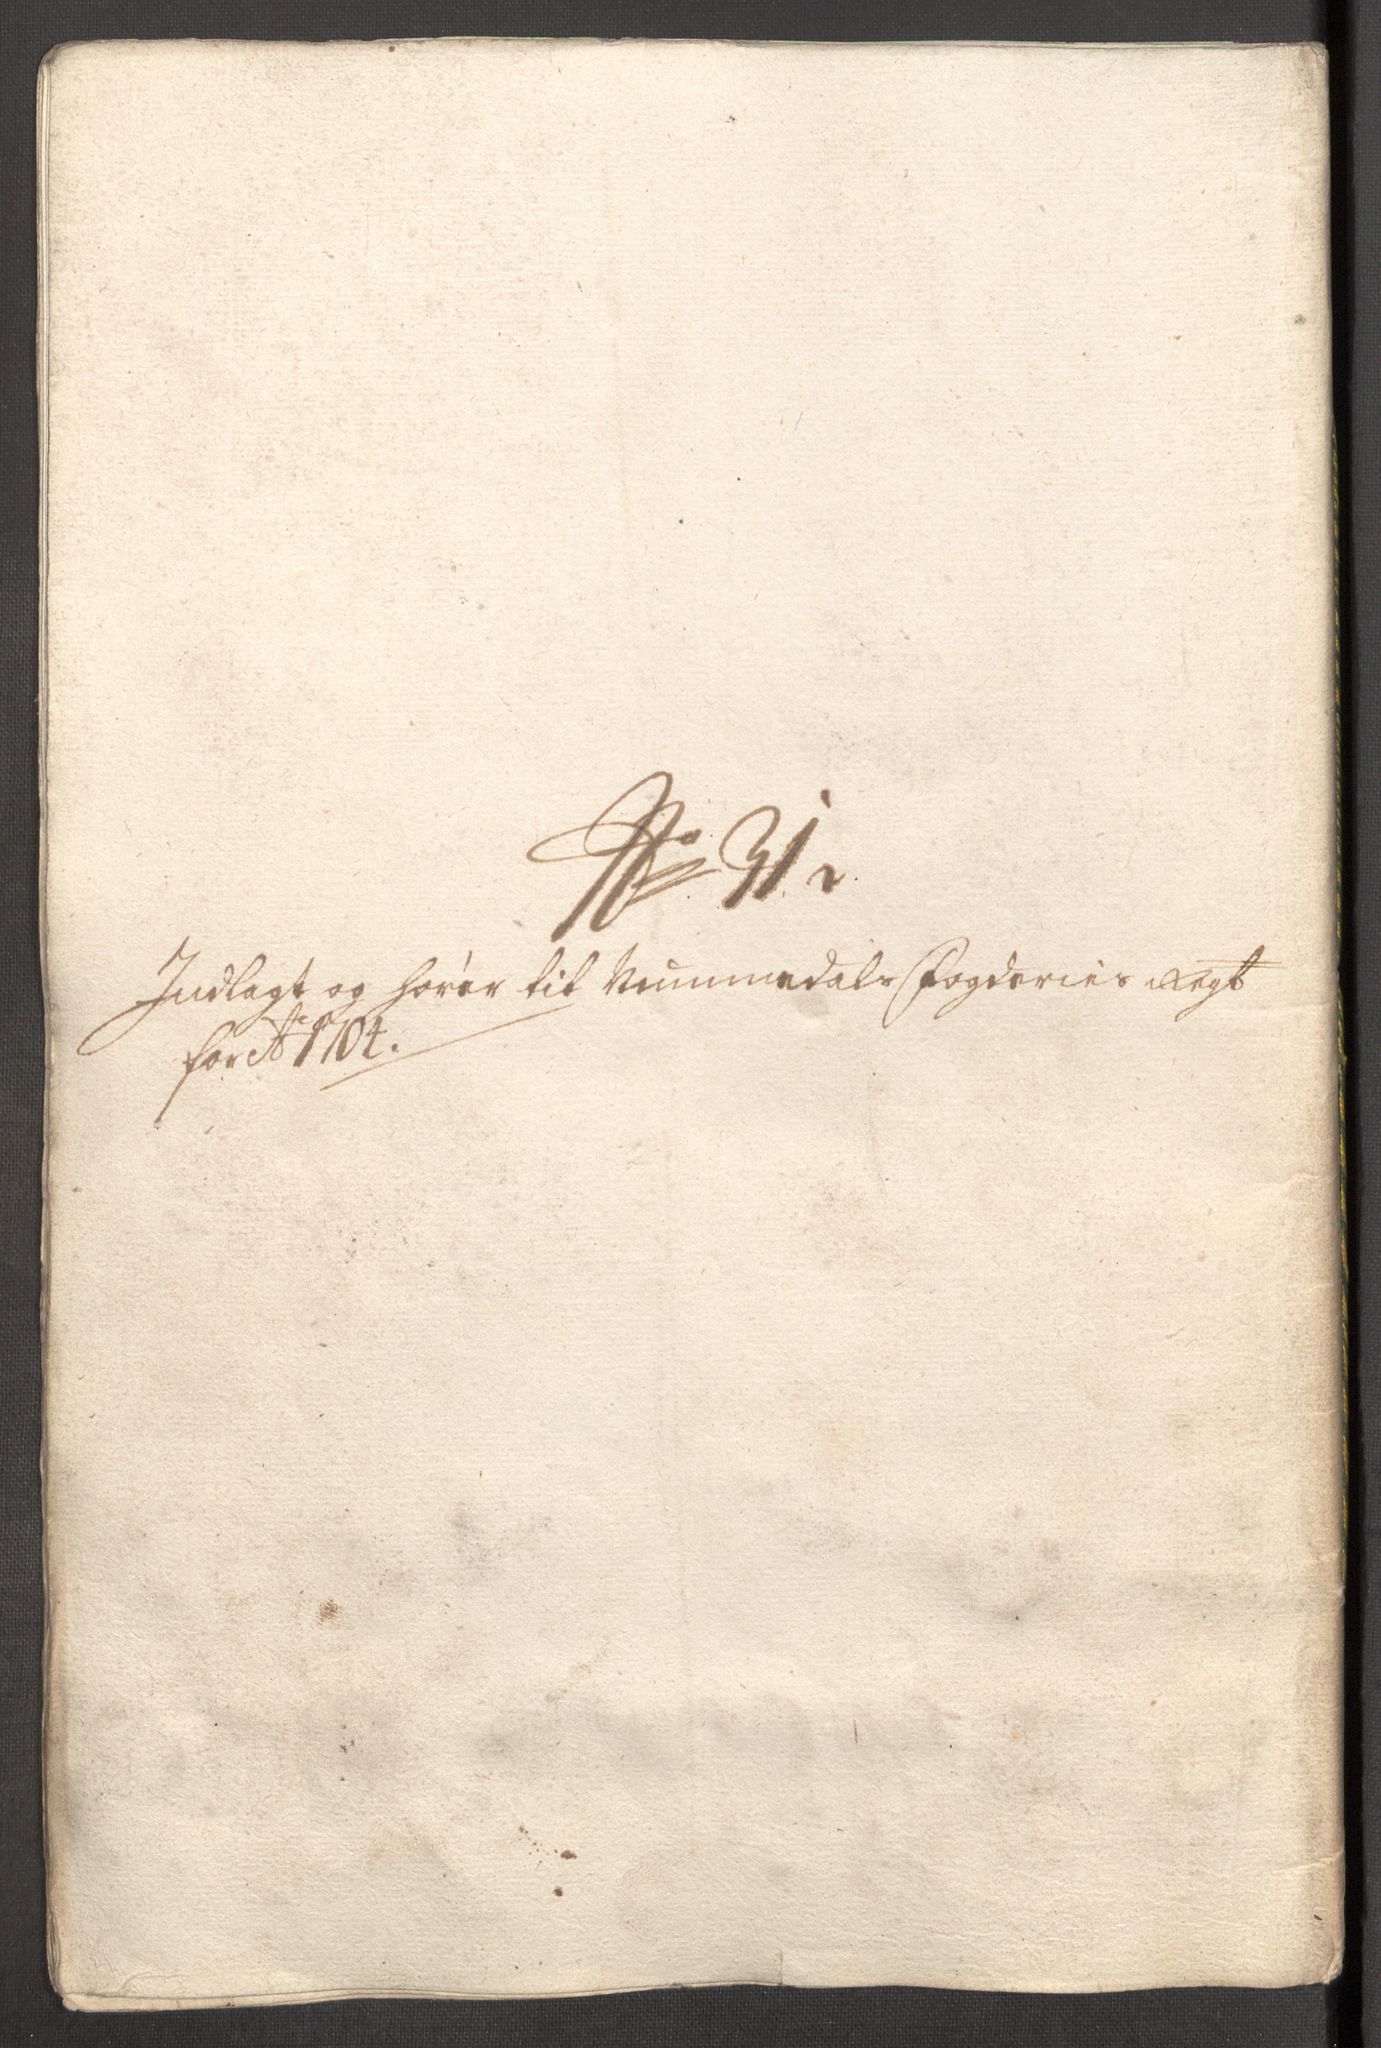 No 31
Indlagt og hörer til Nummedals Fogderies Regt
for Ao 1704.